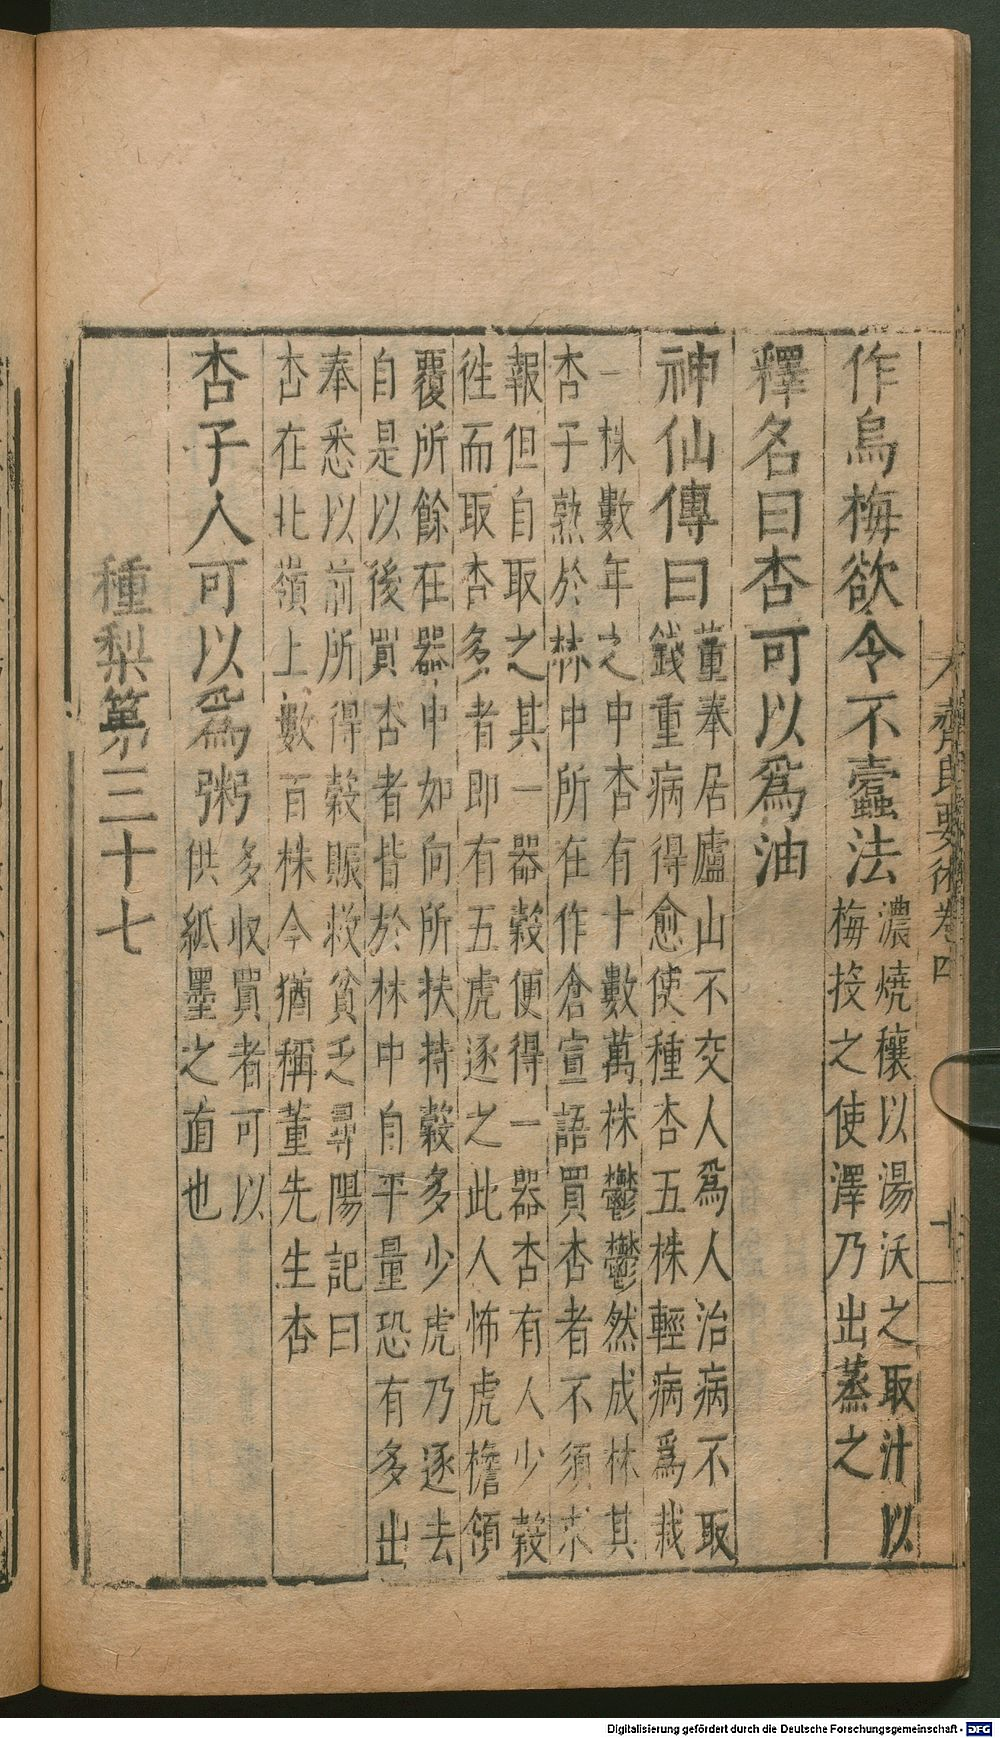 齊民要術卷四
十
作烏梅欲令不蠹法
濃燒穰以湯沃之取汁以
梅投之使澤乃出蒸之
釋名曰杏可以爲油
神仙傳曰
董奉居廬山不交人爲人治病不取
錢重病得愈使種杏五株輕病爲栽
一株數年之中杏有十數萬株鬱鬱然成林其
杏子熟於林中所在作倉宣語買杏者不須求
報但自取之其一器穀便得一器杏有人少穀
徃而取杏多者即有五虎逐之此人怖虎檐領
覆所餘在器中如向所扶持穀多少虎乃逐去
自是以後買杏者皆於林中自平量恐有多出
奉悉以前所得穀賑救貧乏尋陽記曰
杏在北嶺上數百株今猶稱董先生杏
杏子人可以爲粥
多收買者可以
供紙墨之直也
種梨第三十七
Digitalisierung gefördert durch die Deutsche Forschungsgemeinschaft - DFG